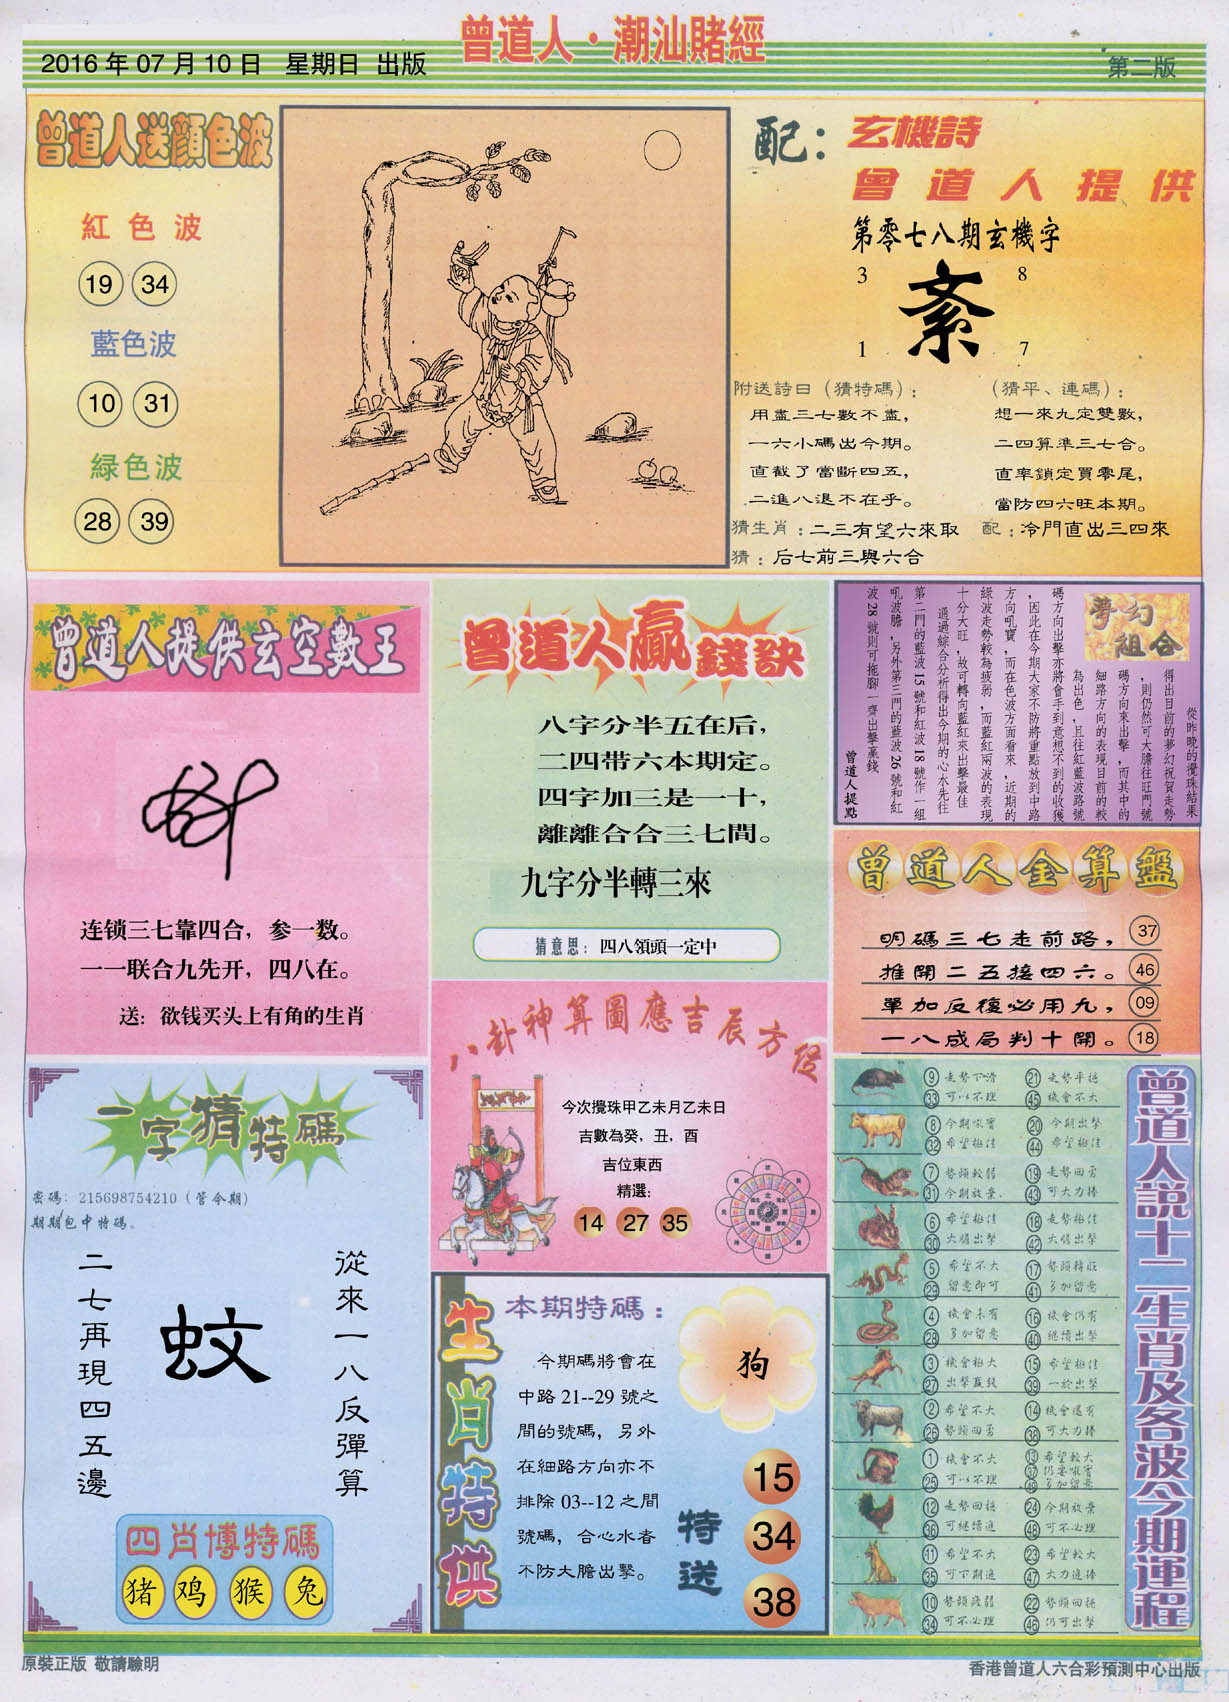 曾道人·潮汕賭經
2016年07月10日 星期日 出版
第二版
曾道人送顏色波
紅色波
19 34
藍色波
10 31
緑色波
28 39
配：玄機詩
曾道人提供
第零七八期玄機字
3 8
紊
1 7
附送詩曰（猜特碼）：
用盡三七數不盡，
一六小碼出今期。
直截了當斷四五，
二進八退不在乎。
（猜平、連碼）：
想一來九定雙數，
二四算準三七合。
直率鎖定買零尾，
當防四六旺本期。
猜生肖：二三有望六來取
配：冷門直出三四來
猜：后七前三與六合
曾道人提供玄空數王
连锁三七靠四合，参一数。
一一联合九先开，四八在。
送：欲钱买头上有角的生肖
曾道人贏錢訣
八字分半五在后，
二四带六本期定。
四字加三是一十，
離離合合三七間。
九字分半轉三來
猜意思：四八領頭一定中
夢幻組合
從昨晚的攪珠結果
得出目前的夢幻祝賀走勢
，則仍然可大膽往旺門號
碼方向來出擊，而其中的
細路方向的表現目前的較
為出色，且往紅藍波路號
碼方向出擊亦將會手到意想不到的收獲
，因此在今期大家不防將重點放到中路
方向吼寶，而在色波方面看來，近期的
綠波走勢較為疲弱，而藍紅兩波的表現
十分大旺，故可轉向藍紅來出擊最佳
通過綜合分析得出今期的心水先往
第二門的藍波15號和紅波18號作一組
吼波膽，另外第三門的藍波26號和紅
波28號則可拖腳一齊出擊贏錢
曾道人提點
曾道人金算盤
明碼三七走前路， 37
推開二五接四六。 46
單加反復必用九， 09
一八成局判十開。 18
八卦神算圖應吉辰方位
今次攪珠甲乙未月乙未日
吉數為癸，丑，酉
吉位東西
精選：
14 27 35
一字猜特碼
密碼：215698754210（管令期）
期期包中特碼。
從來一八反彈算
蚊
二七再現四五邊
四肖博特碼
猪 鸡 猴 兔
生肖特供
本期特碼：
今期碼將會在
中路21--29號之
間的號碼，另外
在細路方向亦不
排除03--12之間
號碼，合心水者
不防大膽出擊。
狗
特送
15
34
38
曾道人説十二生肖及各波今期運程
9 走勢下滑 21 走勢平穩
33 可以不理 45 機會不大
8 今期吼寶 20 今期出擊
32 希望極佳 44 希望極佳
7 勢頭較弱 19 走勢回勇
31 今期放棄 43 可大力捧
6 希望極佳 18 走勢極佳
30 大膽出擊 42 大膽出擊
5 希望不大 17 勢頭轉旺
29 留意即可 41 多加留意
4 機會未有 16 機會仍有
28 多加留意 40 繼續出擊
3 機會極大 15 希望極佳
27 出擊贏錢 39 一於出擊
2 希望不大 14 機會還有
26 勢頭回勇 38 可大力捧
1 機會不大 13 希望較大
25 可以不理 37 仍要吼實
49 多加留意
12 走勢回穩 24 今期放棄
36 可繼續追 48 可不必理
11 希望不大 23 希望較大
35 可下期追 47 大力追捧
10 勢頭疲弱 22 勢頭回穩
34 可不必理 46 仍可出擊
原裝正版 敬請驗明
香港曾道人六合彩預測中心出版